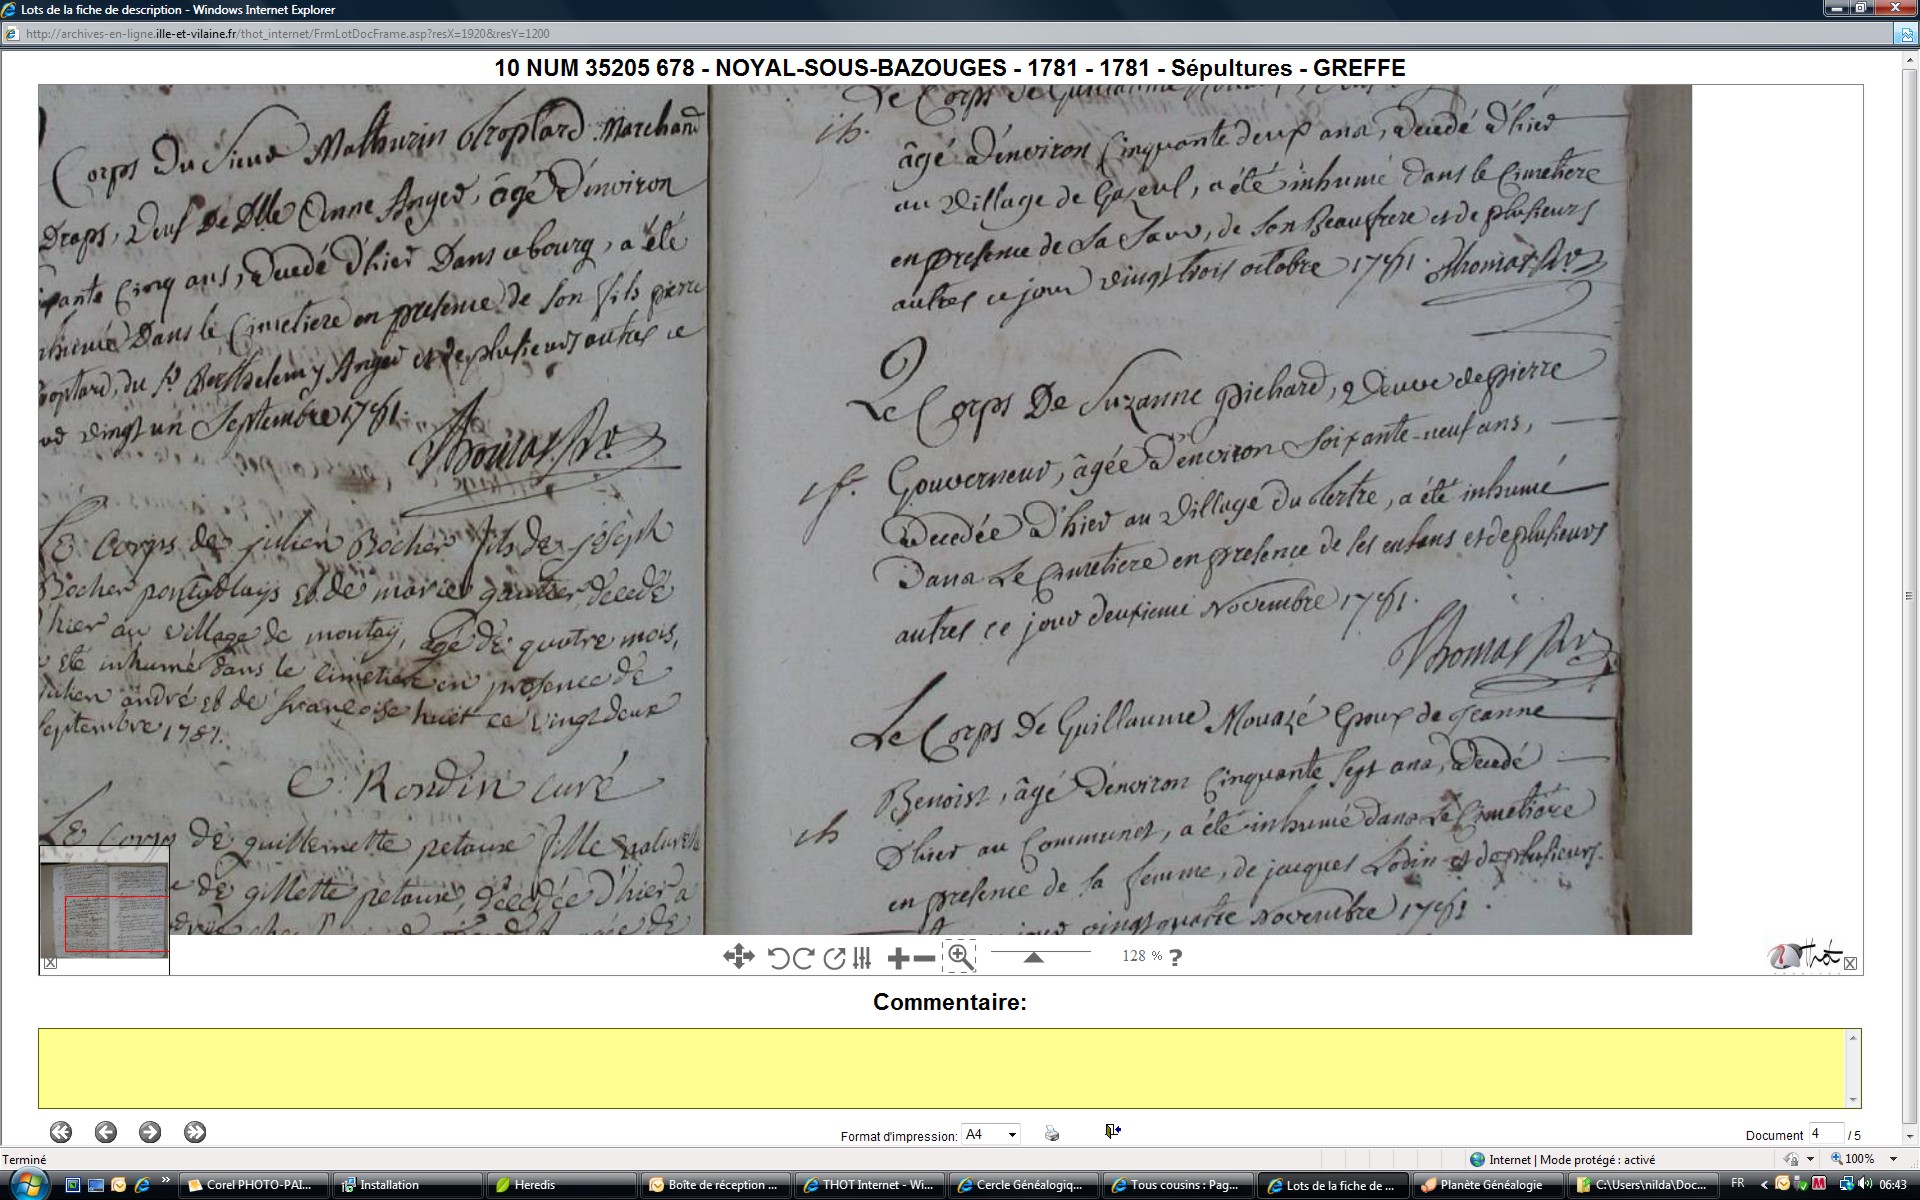 Lots de la fiche de description - Windows Internet Explorer
http://archives-en-ligne.ille-et-vilaine.fr/thot_internet/FrmLotDocFrame.asp?resX=1920&resY=1200
10 NUM 35205 678 - NOYAL-SOUS-BAZOUGES - 1781 - 1781 - Sépultures - GREFFE
Corps Du Sieur Mathurin Troptard Marchand
Draps, veuf De Dlle Anne Anger, âgé D'environ
cinq ans, Decedé D'hier Dans ce bourg, a été
Dans le Cimetiere en presence de son fils pierre
du Sr Berthelemy Anger et de plusieurs autres ce
vingt un Septembre 1781.
Thomas Rr
Le Corps de julien Rocher fils de joseph
Rocher et de marie gautier, decedé
hier au village de montay, agé de quatre mois,
été inhumé dans le cimetiere en presence de
julien andré et de françoise huet ce vingt deux
septembre 1781.
C. Rondin curé
Le corps de guillemette petaux fille naturelle
de gillette petaux, decedée d'hier a
Le Corps de Guillaume
ih.
âgé D'environ Cinquante deux ans, Decedé D'hier
au village de Gaseul, a été inhumé dans le Cimetiere
en presence de Sa Sœur, de son Beaufrere et de plusieurs
autres ce jour vingt trois octobre 1781. Thomas Rr
Le Corps De Suzanne pichard, Veuve de pierre
Gouverneur, âgée D'environ Soixante-neuf ans,
Decedée D'hier au village Du tertre, a été inhumé
Dans Le Cimetiere en presence de ses enfans et de plusieurs
autres ce jour deuxieme Novembre 1781.
Thomas Rr
Le Corps De Guillaume Mouazé Epoux de jeanne
Benoist, âgé D'environ Cinquante sept ans, Decedé
ih
D'hier au Communet, a été inhumé dans Le Cimetiere
en presence de sa femme, de jacques Lodin et de plusieurs
jour vingt quatre Novembre 1781.
128 % ?
Thot
Commentaire:
Format d'impression: A4
Document 4 / 5
Terminé
Internet | Mode protégé : activé
100%
Corel PHOTO-PAI...
Installation
Heredis
Boîte de réception ...
THOT Internet - Wi...
Cercle Généalogiq...
Tous cousins : Pag...
Lots de la fiche de ...
Planète Généalogie
C:\Users\nilda\Doc...
FR
06:43